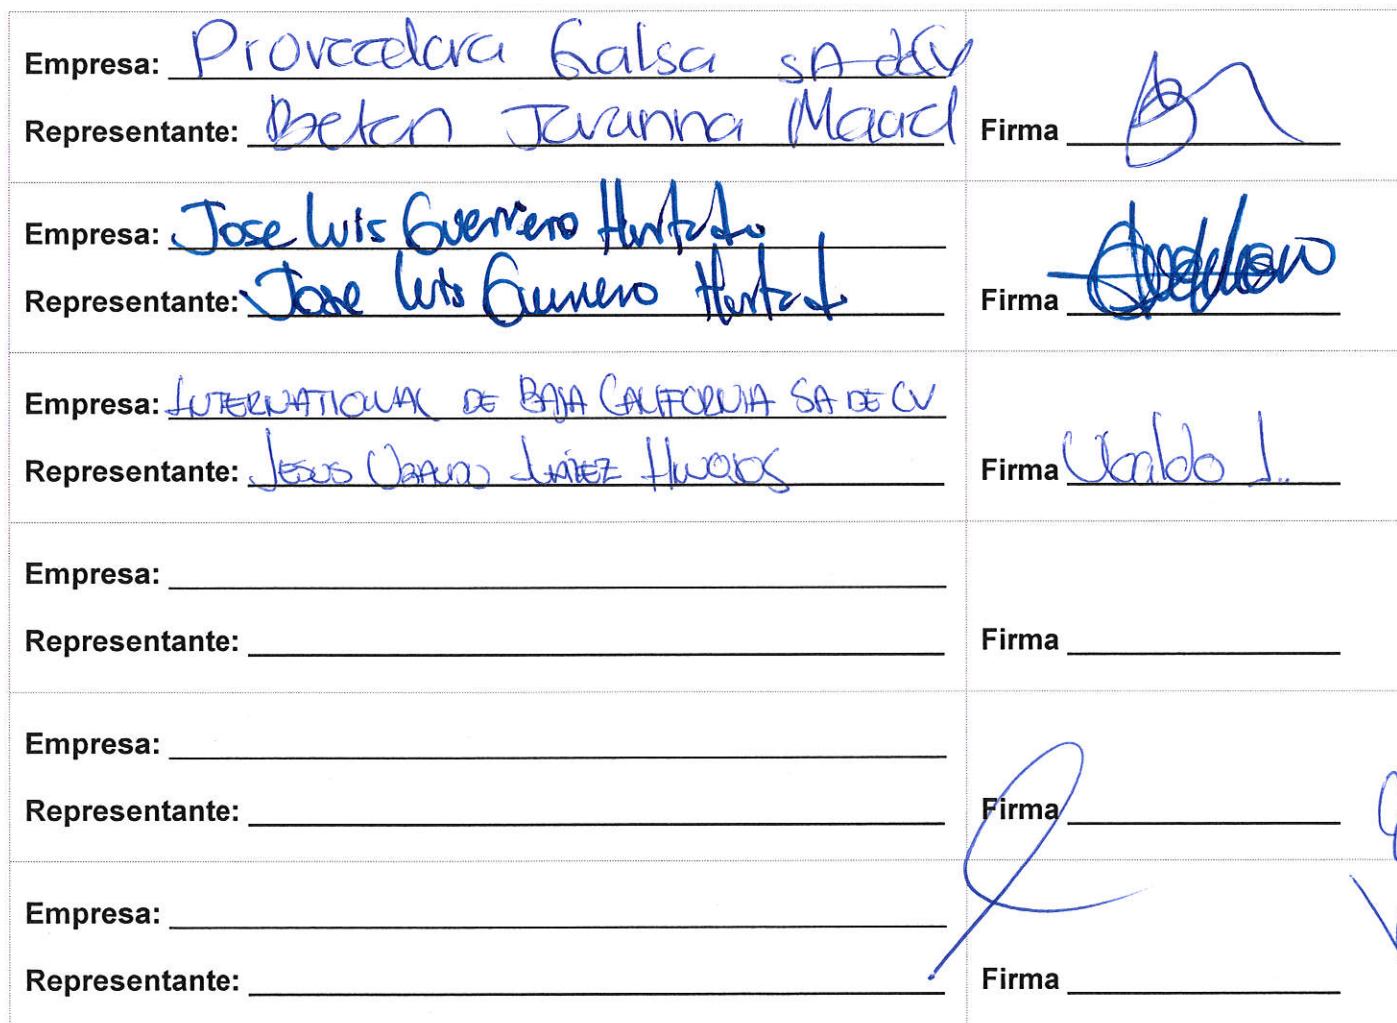 Empresa: Proveedora Galsa SA de CV
Representante: Betan Jovanna Maciel Firma
Empresa: Jose Luis Guerrero Hurtado
Representante: Jose Luis Guerrero Hurtado Firma
Empresa: INTERNATIONAL DE BAJA CALIFORNIA SA DE CV
Representante: JESUS UBALDO HINOJOS Firma Ubaldo
Empresa:
Representante: Firma
Empresa:
Representante: Firma
Empresa:
Representante: Firma